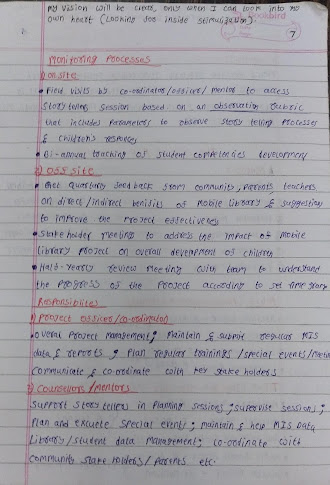 My vision will be clear, only when I can look into my
own heart (Looking for inside stimulization)
7
Monitoring Processes
1) onsite
• Field visits by co-ordinator/officer/ mentor to access
Story telling session based on an observation rubric
that includes parameters to observe story telling processes
& children's responses
• Bi-annual tracking of student competencies development
2) off site
• Get Quarterly feedback from community, parents, teachers
on direct/indirect benifits of mobile library & suggestion
to improve the project effectiveness
• Stake holder meeting to address the impact of mobile
library project on overall development of children
• Half-Yearly review meeting with team to understand
the progress of the project according to set time
Responsiblites
1) Project officer/co-ordinator
• Overal Project Management; Maintain & submit regular MIS
data & reports; Plan regular trainings /special events/
Communicate & co-ordinate with key stake holders
2) Counselors/mentors
Support story tellers in planning sessions; supervise sessions;
Plan and execute special events; maintain & help MIS Data
Library/student data Management; co-ordinate with
community stake holders/ parents etc.